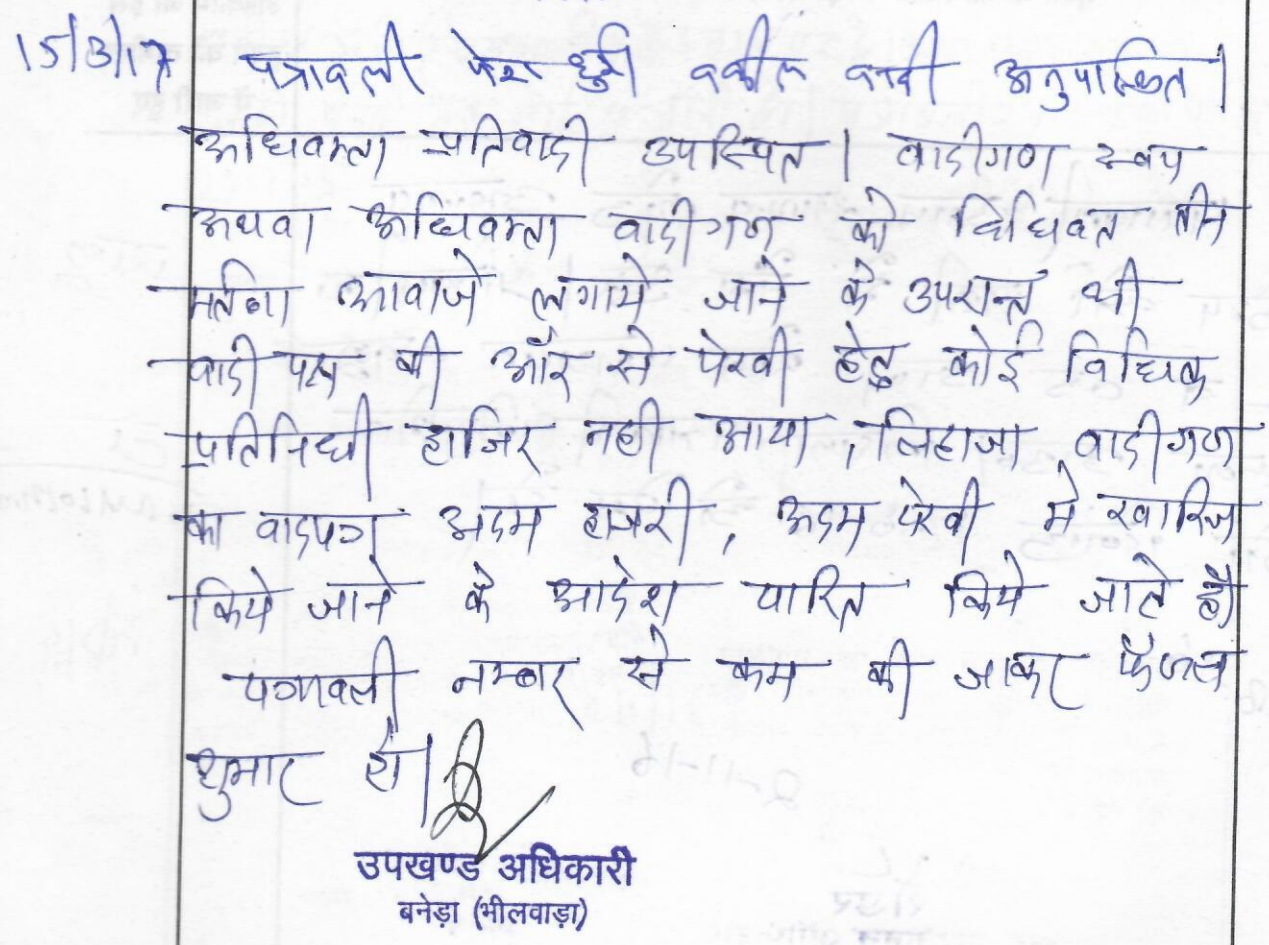 15/3/17 पत्रावली पेश हुई। वकील वादी अनुपस्थित।
अधिवक्ता प्रतिवादी उपस्थित। वादीगण स्वयं
अथवा अधिवक्ता वादीगण को विधिवत तीन
मर्तबा आवाजे लगाये जाने के उपरान्त भी
वादी पक्ष की और से पेरवी हेतु कोई विधिक
प्रतिनिधी हाजिर नही आया, लिहाजा वादीगण
का वादपत्र अदम हाजरी, अदम पेरवी मे खारिज
किये जाने के आदेश पारित किये जाते है।
पत्रावली नम्बर से कम की जाकर फैसल
शुमार हो।
उपखण्ड अधिकारी
बनेड़ा (भीलवाड़ा)